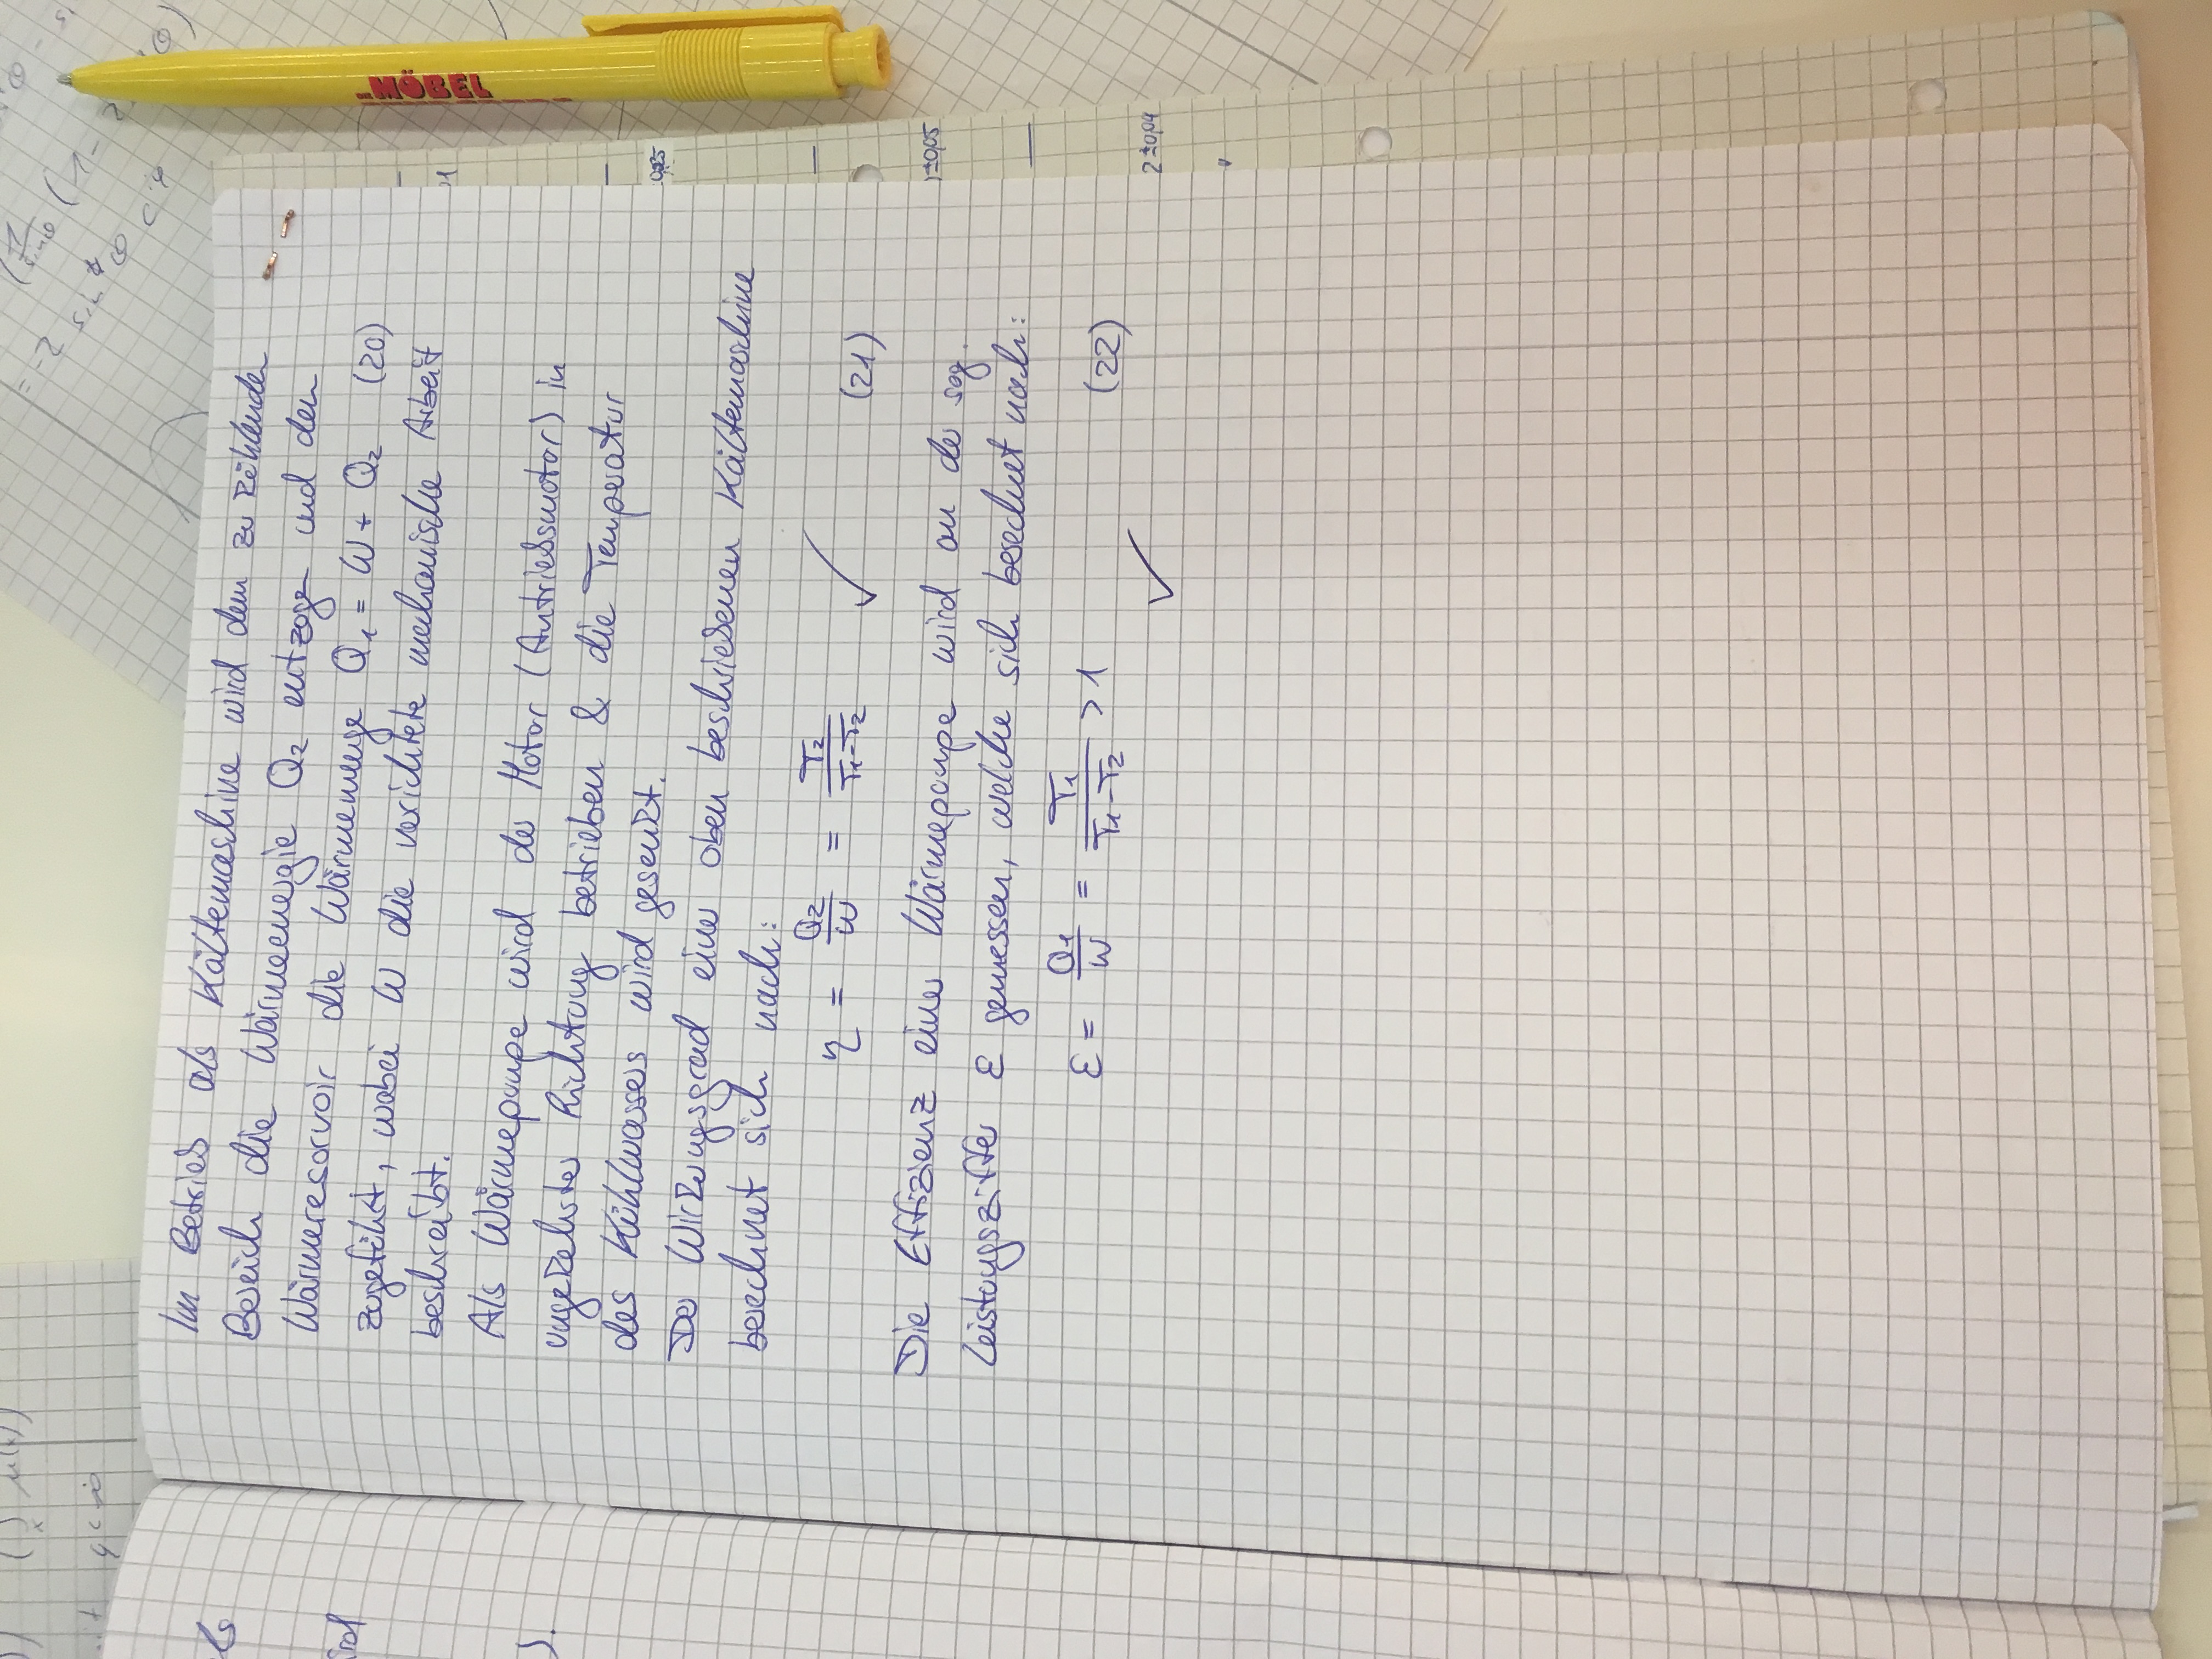 Im Betrieb als Kältemaschine wird dem zu kühlenden
Bereich die Wärmeenergie Q₂ entzogen und dem
Wärmereservoir die Wärmemenge Q₁ = W + Q₂ (20)
zugeführt, wobei W die verrichtete mechanische Arbeit
beschreibt.
Als Wärmepumpe wird der Motor (Antriebsmotor) in
umgekehrter Richtung betrieben & die Temperatur
des Kühlwassers wird gesenkt.
Der Wirkungsgrad einer oben beschriebenen Kältemaschine
berechnet sich nach:
η = Q₂/W = T₂/(T₁-T₂) ✓ (21)
Die Effizienz einer Wärmepumpe wird an der sog.
Leistungsziffer ε gemessen, welche sich berechnet nach:
ε = Q₁/W = T₁/(T₁-T₂) > 1 (22)
✓
MÖBEL
±0,05
2±0,04